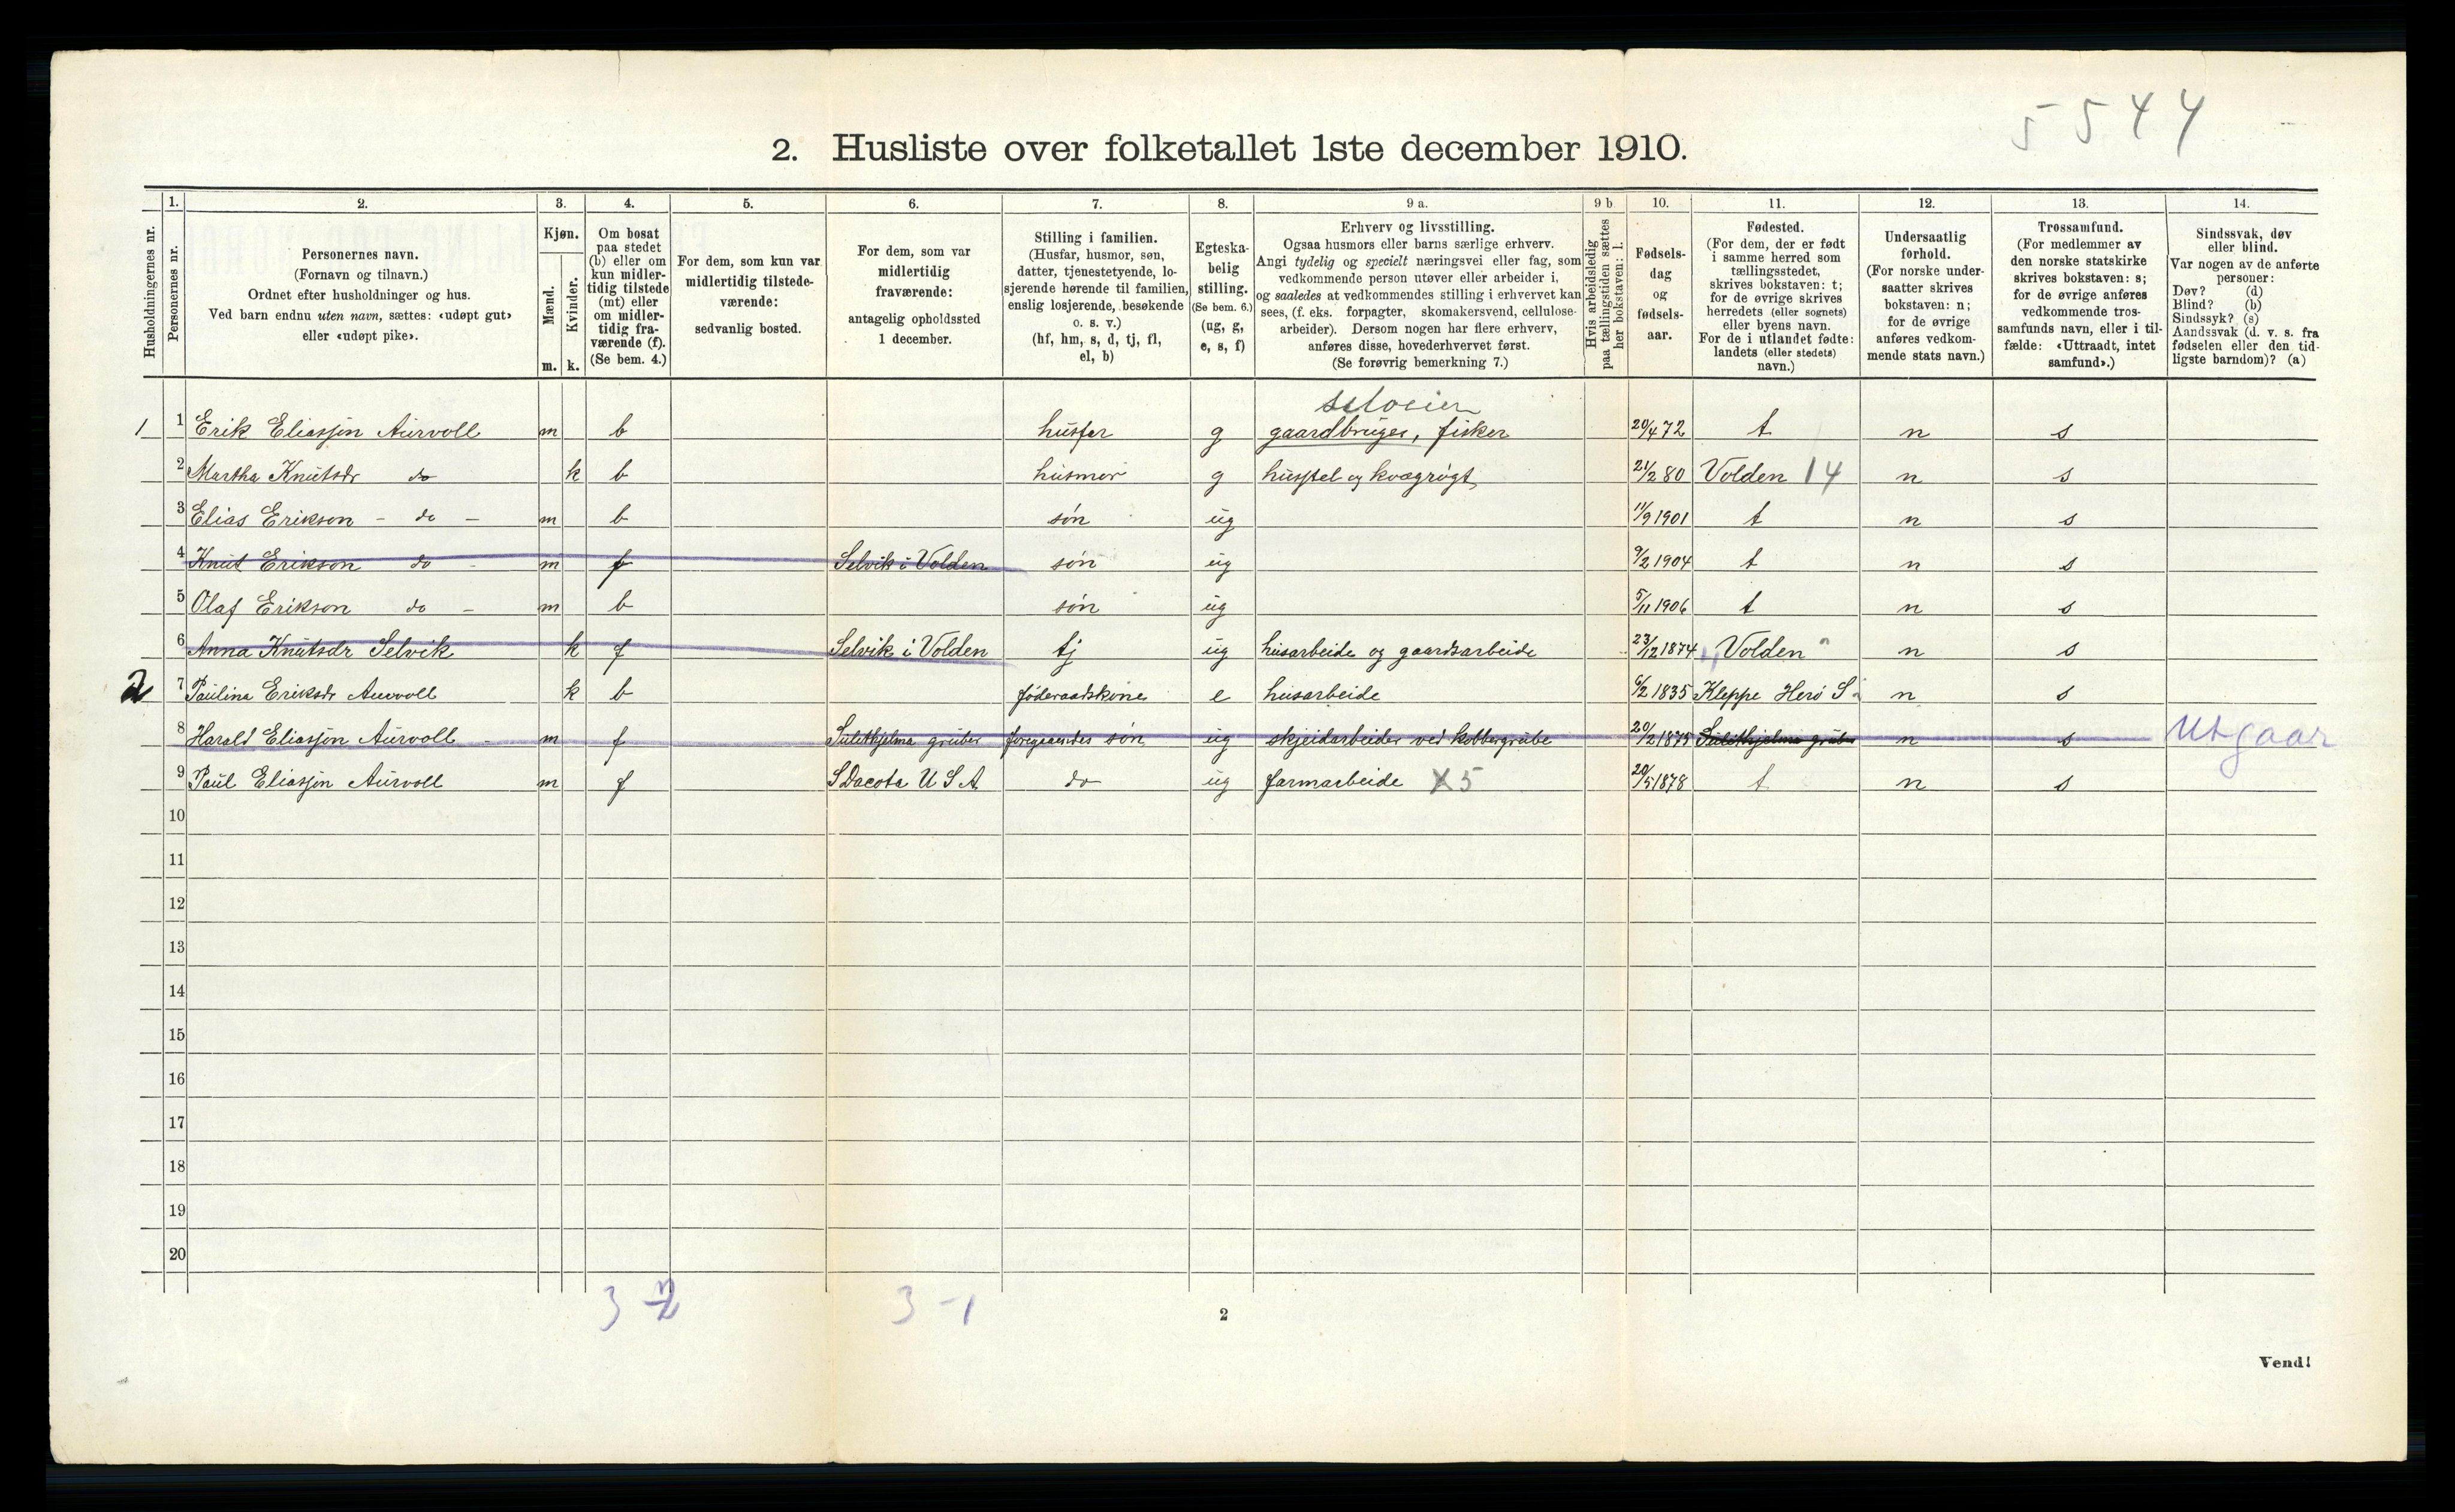 5544
2. Husliste over folketallet 1ste december 1910.
Husholdningernes nr.
1.
Personernes nr.
2.
Personernes navn.
(Fornavn og tilnavn.)
Ordnet efter husholdninger og hus.
Ved barn endnu uten navn, sættes: «udøpt gut»
eller «udøpt pike».
3.
Kjøn.
Mænd.
Kvinder.
m. k.
4.
Om bosat
paa stedet
(b) eller om
kun midler-
tidig tilstede
(mt) eller
om midler-
tidig fra-
værende (f).
(Se bem. 4.)
5.
For dem, som kun var
midlertidig tilstede-
værende:
sedvanlig bosted.
6.
For dem, som var
midlertidig
fraværende:
antagelig opholdssted
1 december.
7.
Stilling i familien.
(Husfar, husmor, søn,
datter, tjenestetyende, lo-
sjerende hørende til familien,
enslig losjerende, besøkende
o. s. v.)
(hf, hm, s, d, tj, fl,
el, b)
8.
Egteska-
belig
stilling.
(Se bem. 6.)
(ug, g,
e, s, f)
9 a.
Erhverv og livsstilling.
Ogsaa husmors eller barns særlige erhverv.
Angi tydelig og specielt næringsvei eller fag, som
vedkommende person utøver eller arbeider i,
og saaledes at vedkommendes stilling i erhvervet kan
sees, (f. eks. forpagter, skomakersvend, cellulose-
arbeider). Dersom nogen har flere erhverv,
anføres disse, hovederhvervet først.
(Se forøvrig bemerkning 7.)
9 b
Hvis arbeidsledig
paa tællingstiden sættes
her bokstaven: l.
10.
Fødsels-
dag
og
fødsels-
aar.
11.
Fødested.
(For dem, der er født
i samme herred som
tællingsstedet,
skrives bokstaven: t;
for de øvrige skrives
herredets (eller sognets)
eller byens navn.
For de i utlandet fødte:
landets (eller stedets)
navn.)
12.
Undersaatlig
forhold.
(For norske under-
saatter skrives
bokstaven: n;
for de øvrige
anføres vedkom-
mende stats navn.)
13.
Trossamfund.
(For medlemmer av
den norske statskirke
skrives bokstaven: s;
for de øvrige anføres
vedkommende tros-
samfunds navn, eller i til-
fælde: «Uttraadt, intet
samfund».)
14.
Sindssvak, døv
eller blind.
Var nogen av de anførte
personer:
Døv? (d)
Blind? (b)
Sindssyk? (s)
Aandssvak (d. v. s. fra
fødselen eller den tid-
ligste barndom)? (a)
selveier
1 1 Erik Eliasjøn Aurvoll m b husfar g gaardbruger, fisker 20/4 72 t n s
2 Martha Knutsdr do k b husmor g husstel og kvægrøgt 21/2 80 Volden 14 n s
3 Elias Erikson - do - m b søn ug 11/9 1901 t n s
4 Knut Erikson do - m f Selvik i Volden søn ug 9/2 1904 t n s
5 Olaf Erikson do - m b søn ug 5/11 1906 t n s
6 Anna Knutsdr Selvik k f Selvik i Volden tj ug husarbeide og gaardsarbeide 23/12 1874 Volden n s
2 7 Paulina Eriksdr Aurvoll k b føderaadskone e husarbeide 6/2 1835 Kleppe Herø S n s
8 Harald Eliasjøn Aurvoll - m f Sulithjelma gruber foregaaendes søn ug skjeidarbeider ved kobbergrube 20/2 1875 Sulithjelma grube n s Utgaar
9 Paul Eliasjøn Aurvoll m f S Dacota U S A do ug farmarbeide X5 20/5 1878 t n s
10
11
12
13
14
15
16
17
18
19
20
3 3-1
2
Vend!